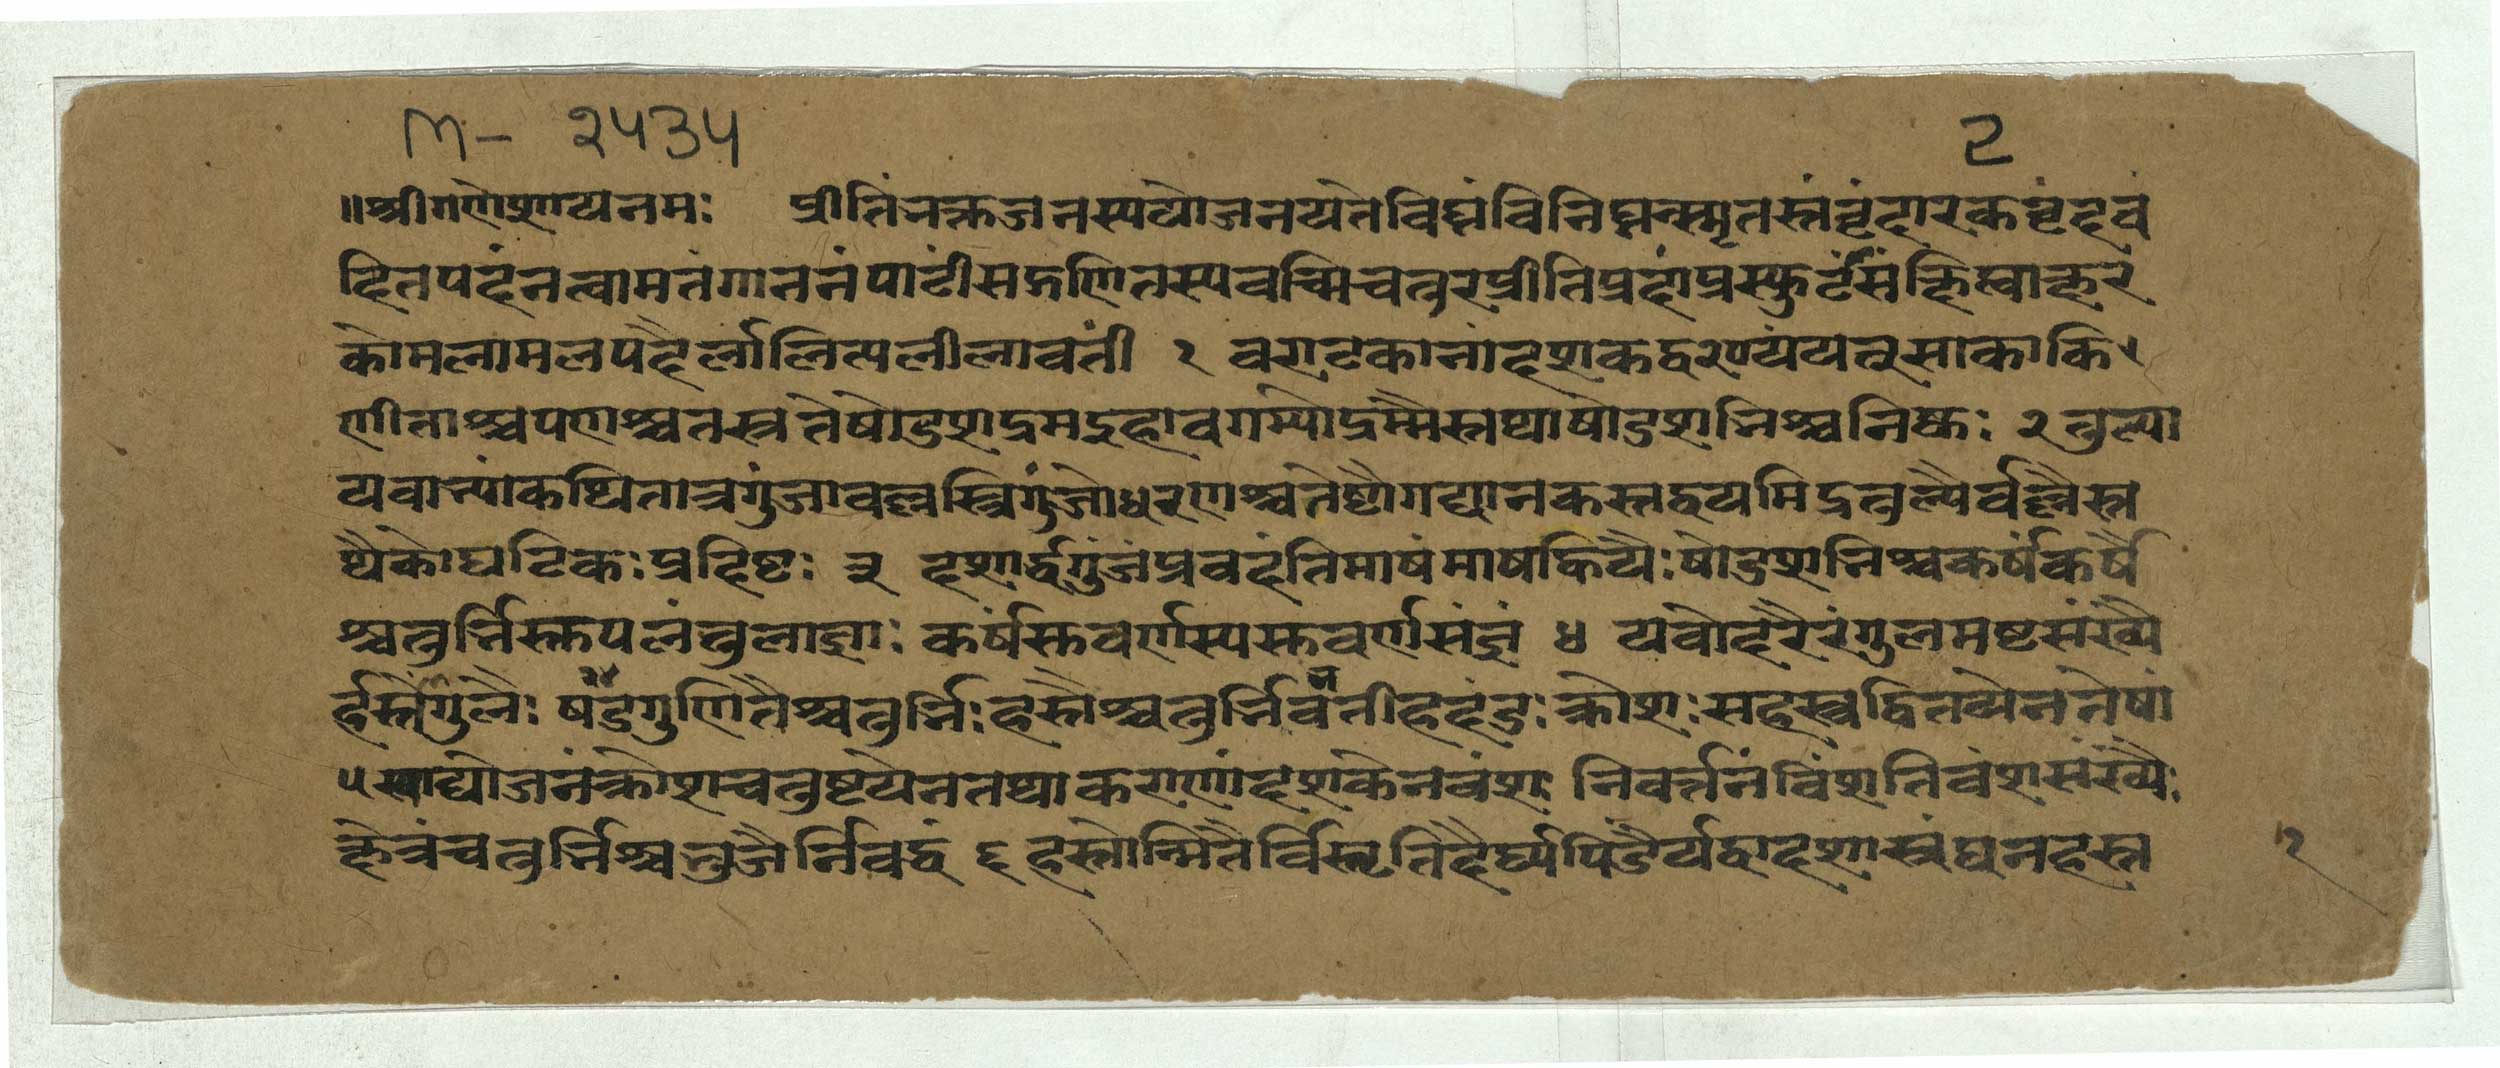 M- २५३५
2
॥श्रीगणेशायनमः प्रीतिंभक्तजनस्ययोजनयतेविघ्नंविनिघ्नन्स्मृतस्तंवृंदारकवृंदवं
दितपदंनत्वामतंगाननंपाटींसद्गणितस्यवच्मिचतुरप्रीतिप्रदांप्रस्फुटांसंक्षिप्ताक्षर
कोमलामलपदैर्लालित्यलीलावतीं १ वराटकानांदशकद्वयंयत्साकाकि
णीताश्चपणश्चतस्रतेषोडशद्रमइहावगम्योद्रम्मैस्तथाषोडशभिश्चनिष्कः २ तुल्या
यवाभ्यांकथितात्रगुंजावल्लस्त्रिगुंजोधरणश्चतेष्टौगद्यानकस्तद्वयमिंद्रतुल्यैर्वल्लैस्त
थैकोघटिकःप्रदिष्टः ३ दशार्द्धगुंजंप्रवदंतिमाषंमाषकियैःषोडशभिश्चकर्षंकर्षै
श्चतुर्भिस्तपलंतुलाज्ञाः कर्षंसुवर्णस्यसुवर्णसंज्ञं ४ यवोदरैरंगुलमष्टसंख्यै
र्हस्तेंगुलैः षड्गुणितैश्चतुर्भिः हस्तैश्चतुर्भिर्भवतीहदंडः क्रोशः सहस्रद्वितयेनतेषां
५ स्याद्योजनंक्रोशचतुष्टयेनतथाकराणांदशकेनवंशः निवर्त्तनंविंशतिवंशसंख्यैः
क्षेत्रंचतुर्भिश्चभुजैर्निबद्धं ६ हस्तोन्मितैर्विस्तृतिदैर्घ्यपिंडैर्यद्वादशास्रंघनहस्त
१